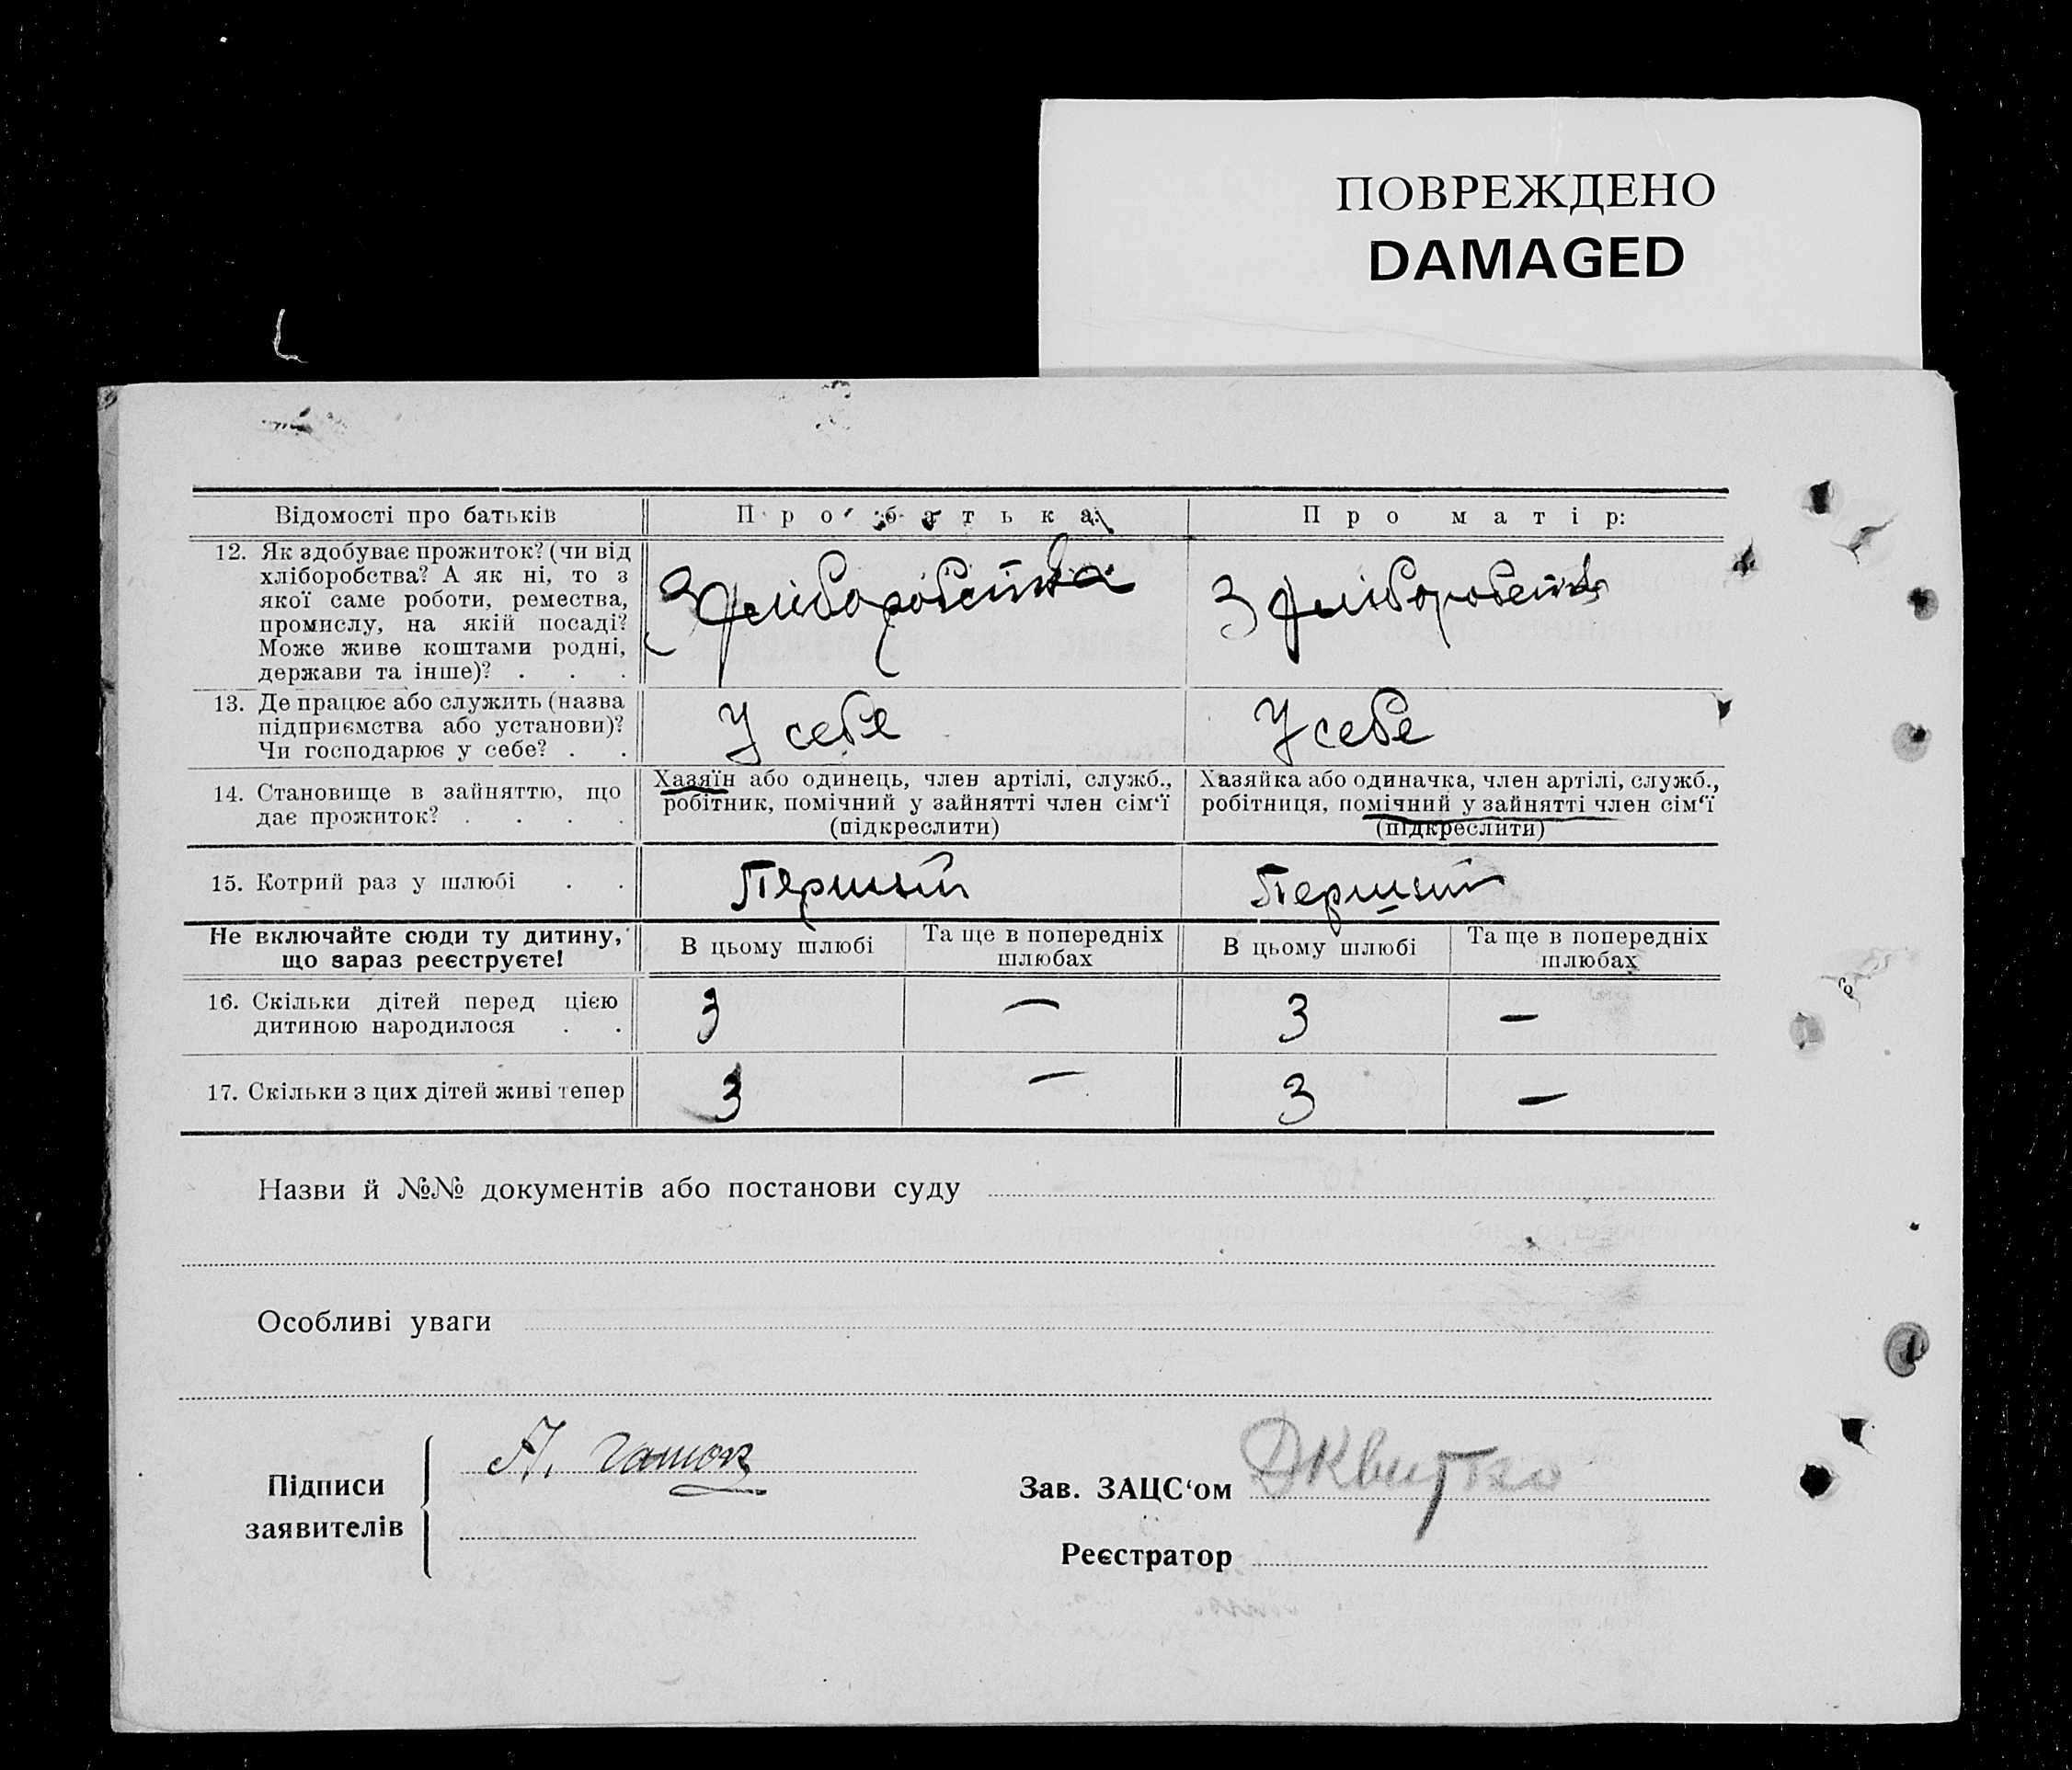 ПОВРЕЖДЕНО
DAMAGED
Відомості про батьків
Про батька:
Про матір:
12. Як здобуває прожиток? (чи від
хліборобства? А як ні, то з
якої саме роботи, ремества,
промислу, на якій посаді?
Може живе коштами родні,
держави та інше)? . . .
З хліборобства
З хліборобства
13. Де працює або служить (назва
підприємства або установи)?
Чи господарює у себе? . .
У себе
У себе
14. Становище в зайняттю, що
дає прожиток? . . . .
Хазяїн або одинець, член артілі, служб.,
робітник, помічний у зайнятті член сім‘ї
(підкреслити)
Хазяйка або одиначка, член артілі, служб.,
робітниця, помічний у зайнятті член сім‘ї
(підкреслити)
15. Котрий раз у шлюбі . .
Перший
Перший
Не включайте сюди ту дитину,
що зараз реєструєте!
В цьому шлюбі
Та ще в попередніх
шлюбах
В цьому шлюбі
Та ще в попередніх
шлюбах
16. Скільки дітей перед цією
дитиною народилося . .
3 — 3 —
17. Скільки з цих дітей живі тепер
3 — 3 —
Назви й №№ документів або постанови суду
Особливі уваги
Підписи
заявителів
Зав. ЗАЦС‘ом
Реєстратор